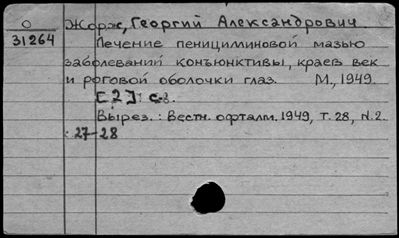 О
31264
Жорж, Георгий Александрович
Лечение пенициллиновой мазью
заболеваний конъюнктивы, краев век
и роговой оболочки глаз. М., 1949.
[2] с.
Вырез.: Вестн. офталм. 1949, т. 28, N. 2.
: 27-28